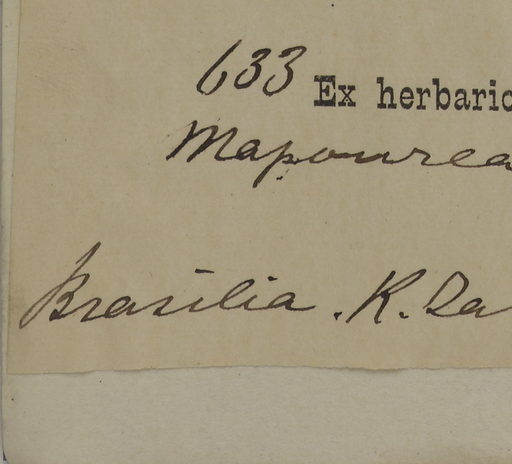 633 Ex herbario
Mapourea
Brasilia. K. La